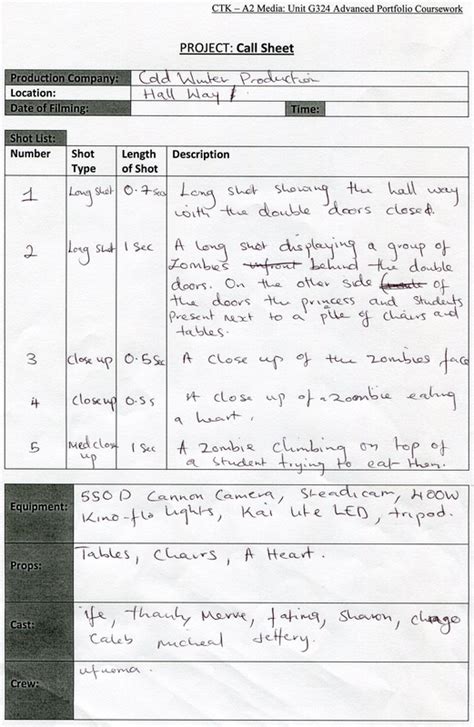 CTK – A2 Media: Unit G324 Advanced Portfolio Coursework
PROJECT: Call Sheet
Production Company: Cold Winter Production
Location: Hall Way
Date of Filming: Time:
Shot List:
Number Shot Type Length of Shot Description
1 Long shot 0.7 sec Long shot showing the hall way
with the double doors closed.
2 Long shot 1 sec A long shot displaying a group of
Zombies behind the double
doors. On the other side of
the doors the princess and students
present next to a pile of chairs and
tables.
3 Close up 0.5 sec A close up of the zombies face
4 close up 0.5s A close up of a zoombie eating
a heart.
5 Med close up 1 sec A zombie climbing on top of
a student trying to eat them.
Equipment: 550D Cannon Camera, Steadicam, 400W
Kino-flo lights, Kai lite LED, tripod.
Props: Tables, Chairs, A Heart.
Cast: Ife, Merve, fatima, Sharon,
Caleb Micheal Jeffery.
Crew: